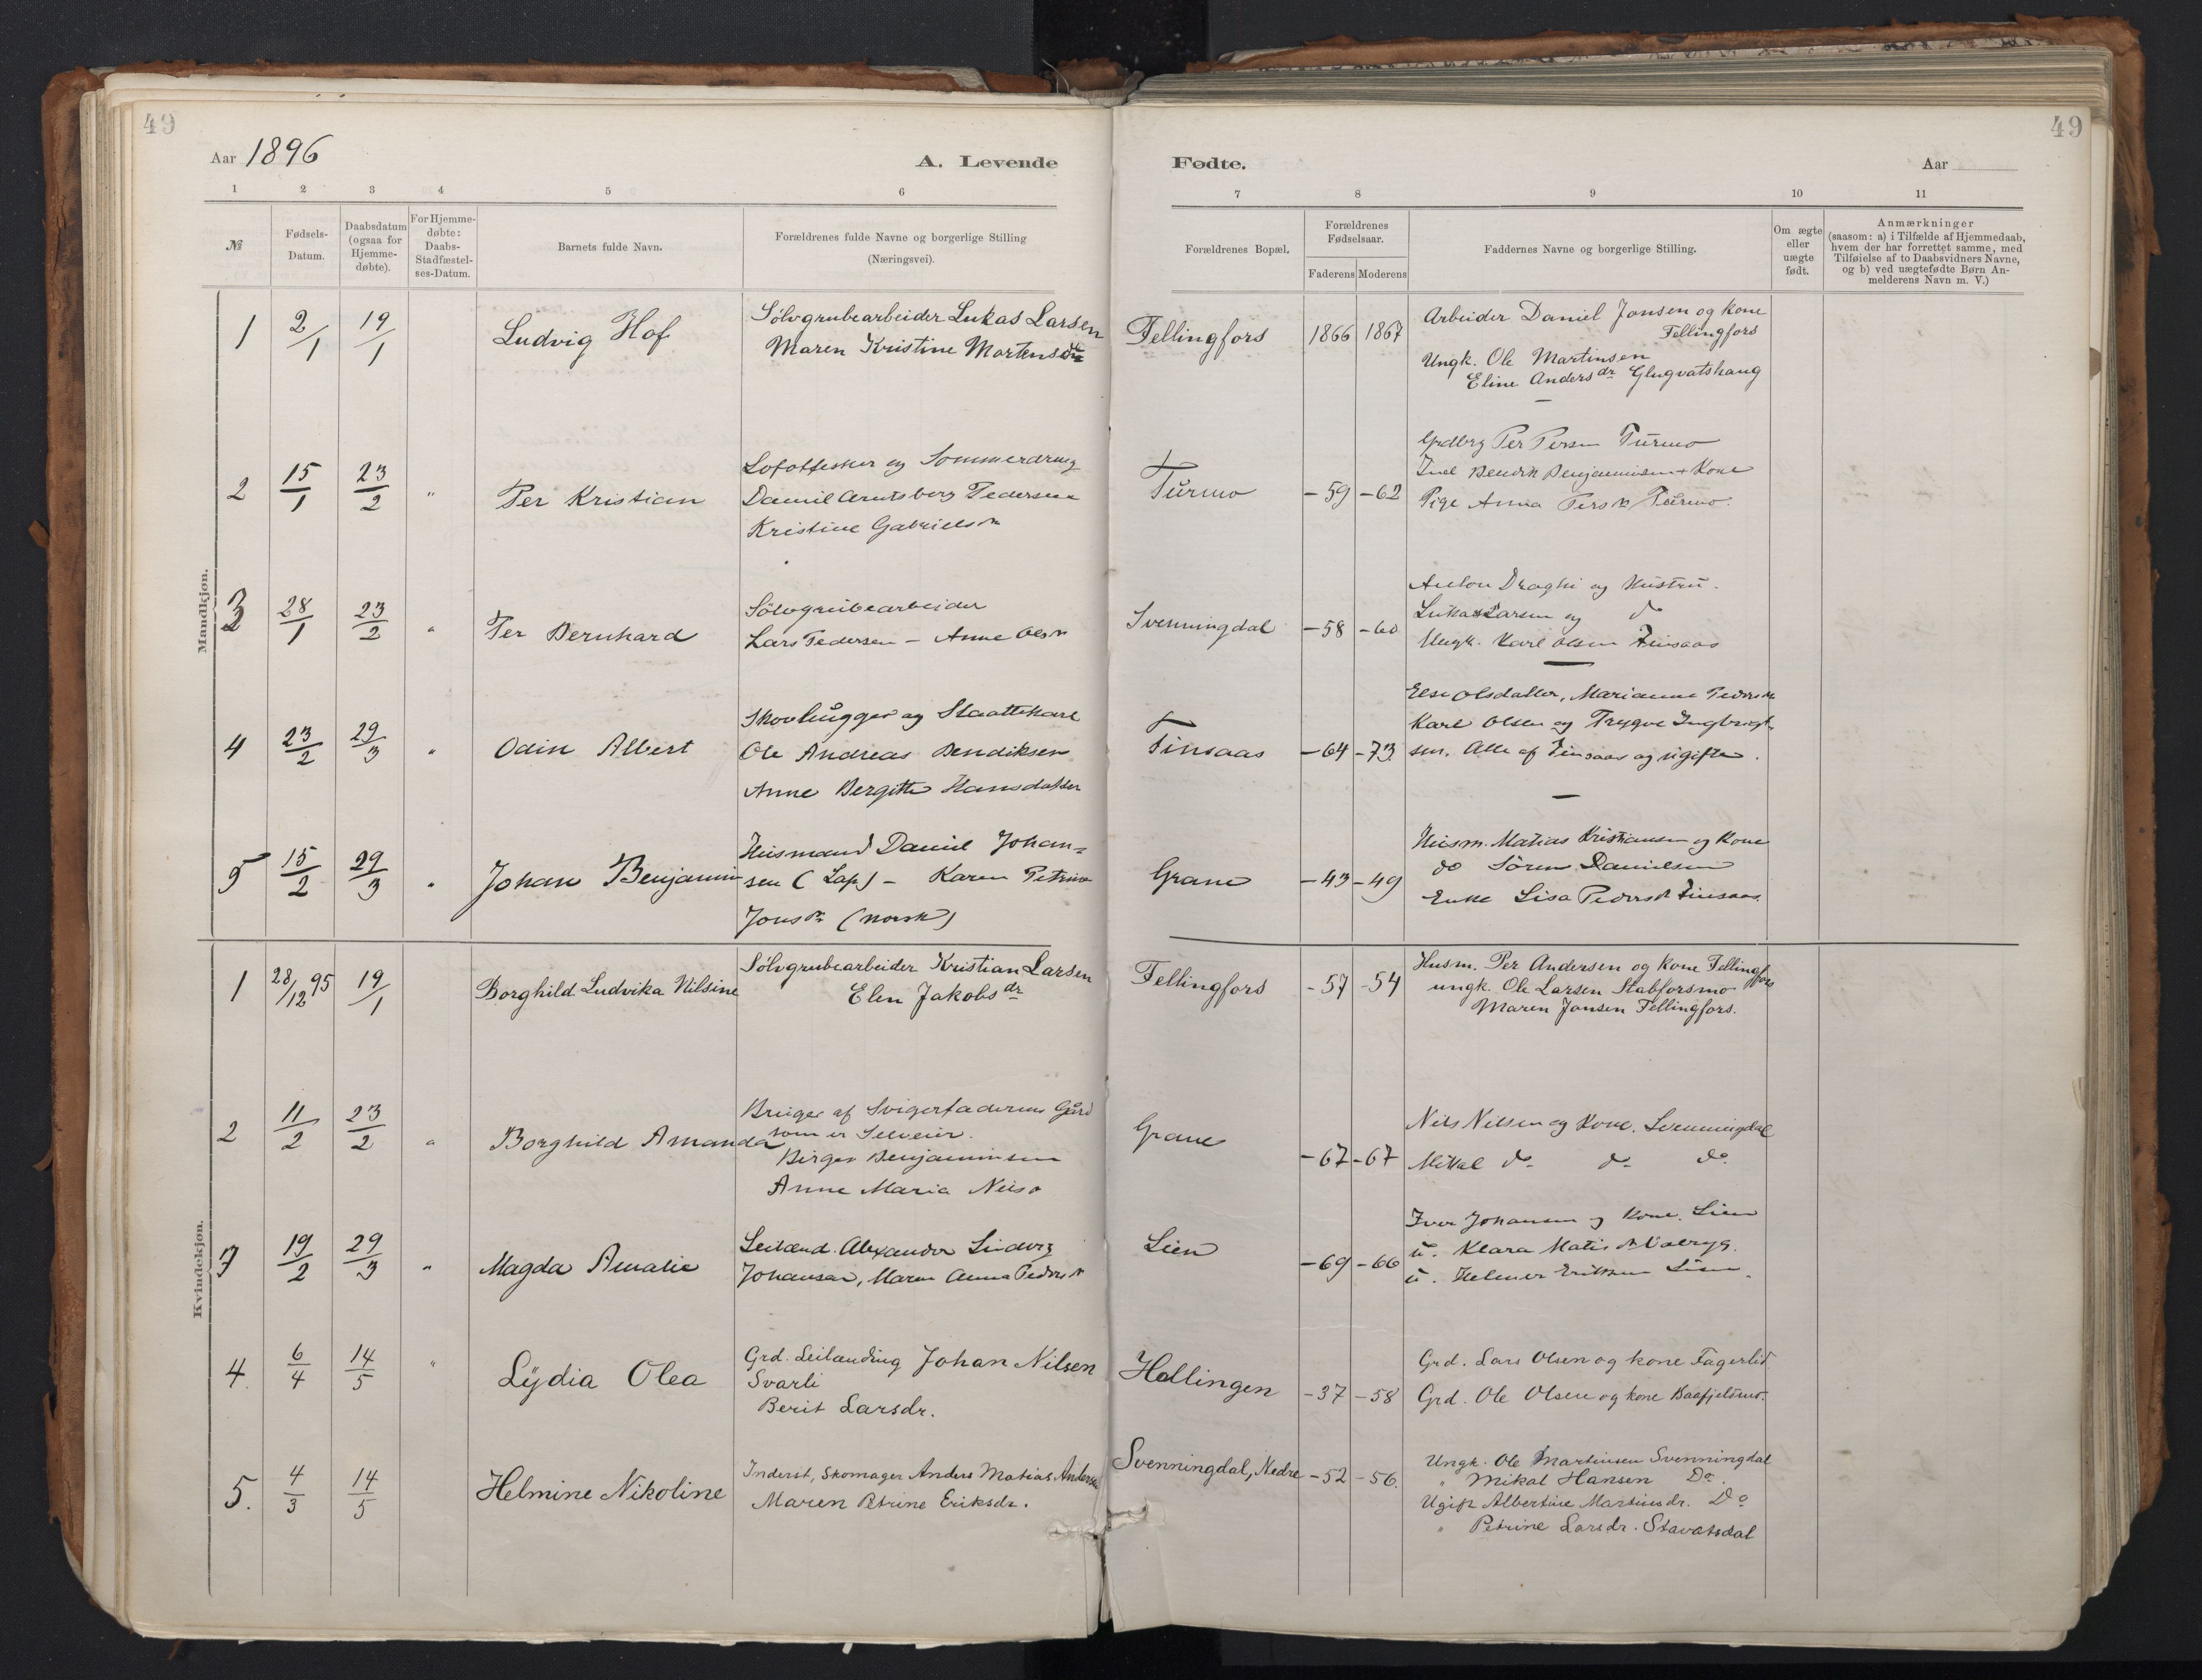 49
Aar 1896
A. Levende
1 2 3 4 5 6
№
Fødsels-Datum.
Daabsdatum (ogsaa for Hjemme-døbte).
For Hjemme-døbte: Daabs-Stadfæstel-ses-Datum.
Barnets fulde Navn.
Forældrenes fulde Navne og borgerlige Stilling (Næringsvei).
Mandkjøn.
1 2/1 19/1 Ludvig Hof
Sølvgrubearbeider Lukas Larsen
Maren Kristine Mortensdtr
2 15/1 23/2 " Per Kristian
Lofotfisker og Sommerdreng
Daniel Arntsberg Pedersen
Kristine Gabrielsdr
3 28/1 23/2 " Per Bernhard
Sölvgrubearbeider
Lars Pedersen - Anne Olsdr
4 23/2 29/3 " Odin Albert
Skovhugger og Slaattekarl
Ole Andreas Bendiksen
Anne Bergitte Hansdatter
5 15/2 29/3 " Johan Benjamin
Husmand Daniel Johan=
sen (Lap) - Karen Petrine
Jonsdr (norsk)
Kvindekjøn.
1 28/12 95 19/1 Borghild Ludvika Nilsine
Sölvgrubearbeider Kristian Larsen
Elen Jakobsdr
2 11/2 23/2 " Borghild Amanda
Bruger af Svigerfaderens Gård
som er Selveier.
Birger Benjaminsen
Anne Maria Nilsdr
3 19/2 29/3 " Magda Amalie
Leilænd. Alexander Lindberg
Johansen, Maren Anna Pedersdr
4. 6/4 14/5 " Lÿdia Olea
Grd. Leilænding Johan Nilsen
Svarli
Berit Larsdr.
5. 4/3 14/5 Helmine Nikoline
Inderst, Skomager Anders Matias Andersen
Maren Petrine Eriksdr.
49
Fødte.
Aar
7 8 9 10 11
Forældrenes Bopæl.
Forældrenes Fødselsaar.
Faderens Moderens
Faddernes Navne og borgerlige Stilling.
Om ægte eller uægte født.
Anmærkninger
(saasom: a) i Tilfælde af Hjemmedaab,
hvem der har forrettet samme, med
Tilføielse af to Daabsvidners Navne,
og b) ved uægtefødte Børn An-
melderens Navn m. V.)
Fellingfors 1866 1867
Arbeider Daniel Jonsen og kone
Fellingfors
Ungk. Ole Martinsen
Eline Andersdr Glugvatshaug
Turmo -59 -62
Per Persen Turmo
Bendik Benjaminsen + Kone
Pige Anna Persdr Turmo.
Svenningdal -58 -60
Anton Draghi og Hustru.
Lukas Larsen og do
Ungk. Karl Olsen Finsaas
Finsaas -64 -73
Else Olsdatter, Marianne Pedersdr
Karl Olsen og Trygve Ingbrigt-
sen. Alle af Finsaas og ugifte.
Grane -43 -49
Husm. Matias Kristiansen og Kone
do Sören Danielsen
Enke Lisa Pedersdr Finsaas.
Fellingfors -57 -54
Husm. Per Andersen og kone Fellingfors
ungk. Ole Larsen Stabforsmo
Maren Jonsen Fellingfors.
Grane -67 -67
Nils Nilsen og Kone. Svenningdal
Mikal do do do
Lien -69 -66
Iver Johansen og Kone. Lien
u. Klara Matisdr
u. Helmer Eriksen Lien.
Hallingen -37 -58
Grd. Lars Olsen og kone Fagerlid
Grd. Ole Olsen og kone Baafjelmo.
Svenningdal, Nedre -52 -56.
Ungk. Ole Martinsen Svenningdal
" Mikal Hansen Do.
Ugift Albertine Martinusdr. Do
" Petrine Larsdr. Stavatsdal